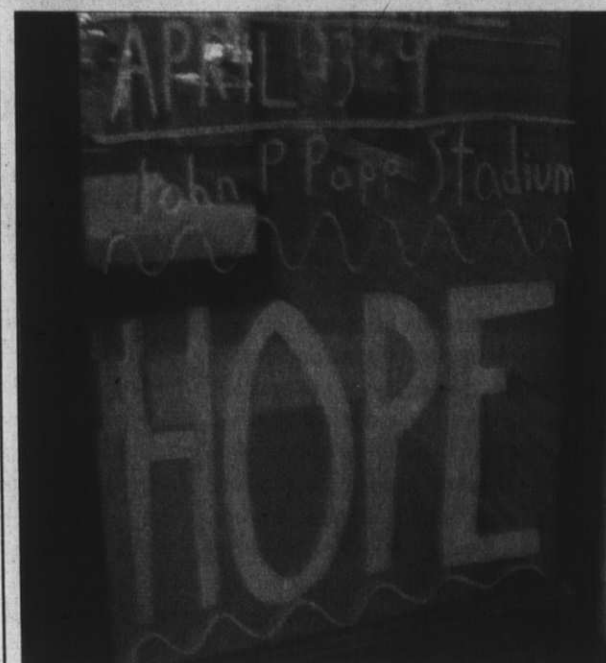 APRIL 3-4
John P Papp Stadium
HOPE